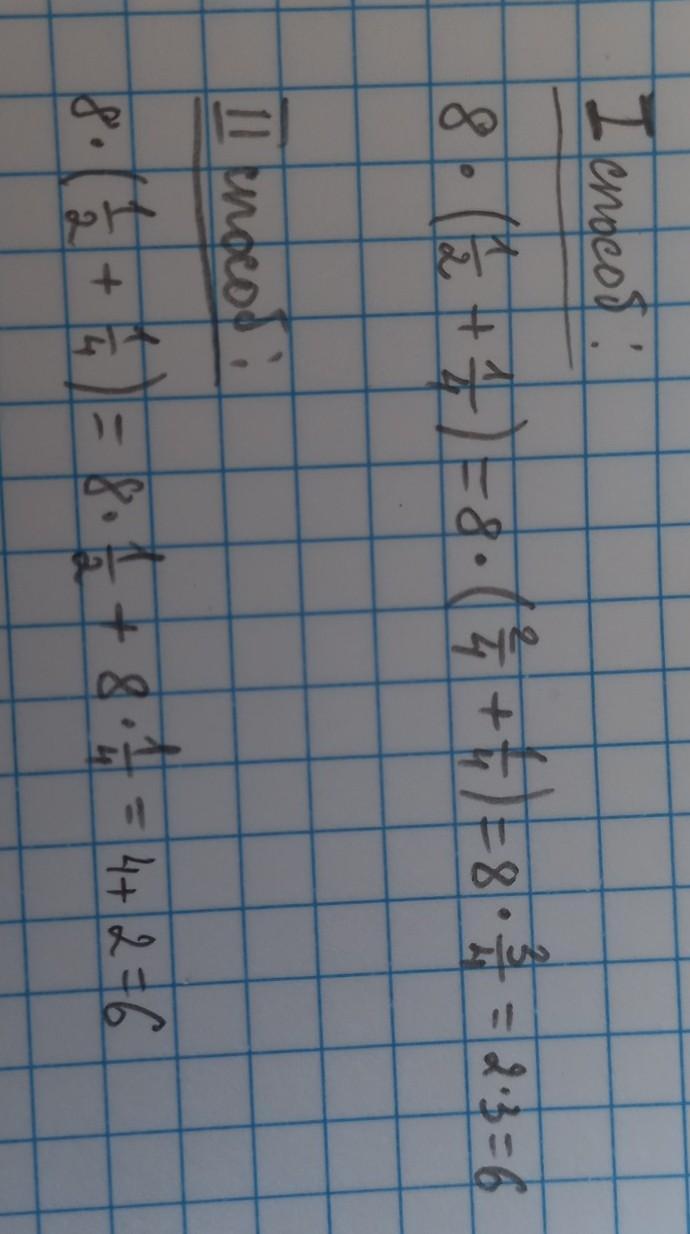 I способ:
8 · (1/2 + 1/4) = 8 · (2/4 + 1/4) = 8 · 3/4 = 2·3 = 6
II способ:
8 · (1/2 + 1/4) = 8 · 1/2 + 8 · 1/4 = 4 + 2 = 6